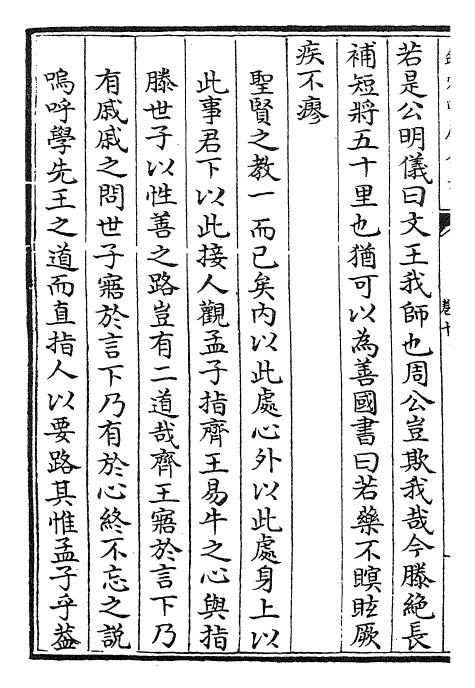 若是公明儀曰文王我師也周公豈欺我哉今滕絶長
補短將五十里也猶可以為善國書曰若藥不瞑眩厥
疾不瘳
聖賢之教一而已矣内以此處心外以此處身上以
此事君下以此接人觀孟子指齊王易牛之心與指
滕世子以性善之路豈有二道哉齊王寤於言下乃
有戚戚之問世子寤於言下乃有於心終不忘之說
嗚呼學先王之道而直指人以要路其惟孟子乎葢